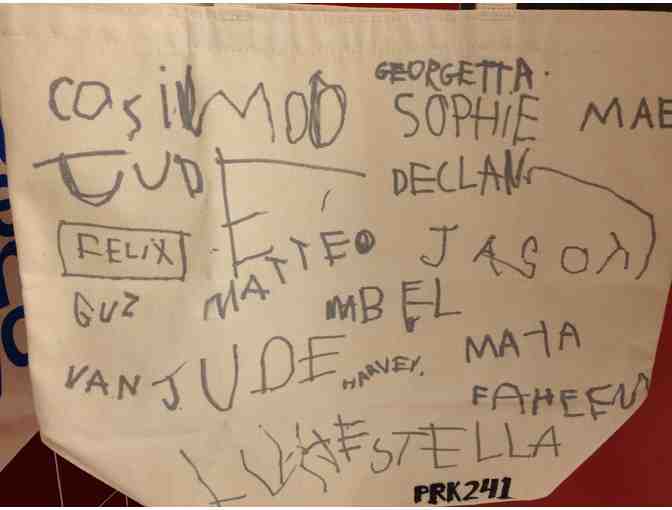 GEORGETTA.
COSIMO SOPHIE MAE
JUDE DECLAN
FELIX MATTÉO JASON
GUZ MBEL
VAN JUDE HARVEY. MAYA
FAHEEM
LUKE STELLA
PRK241